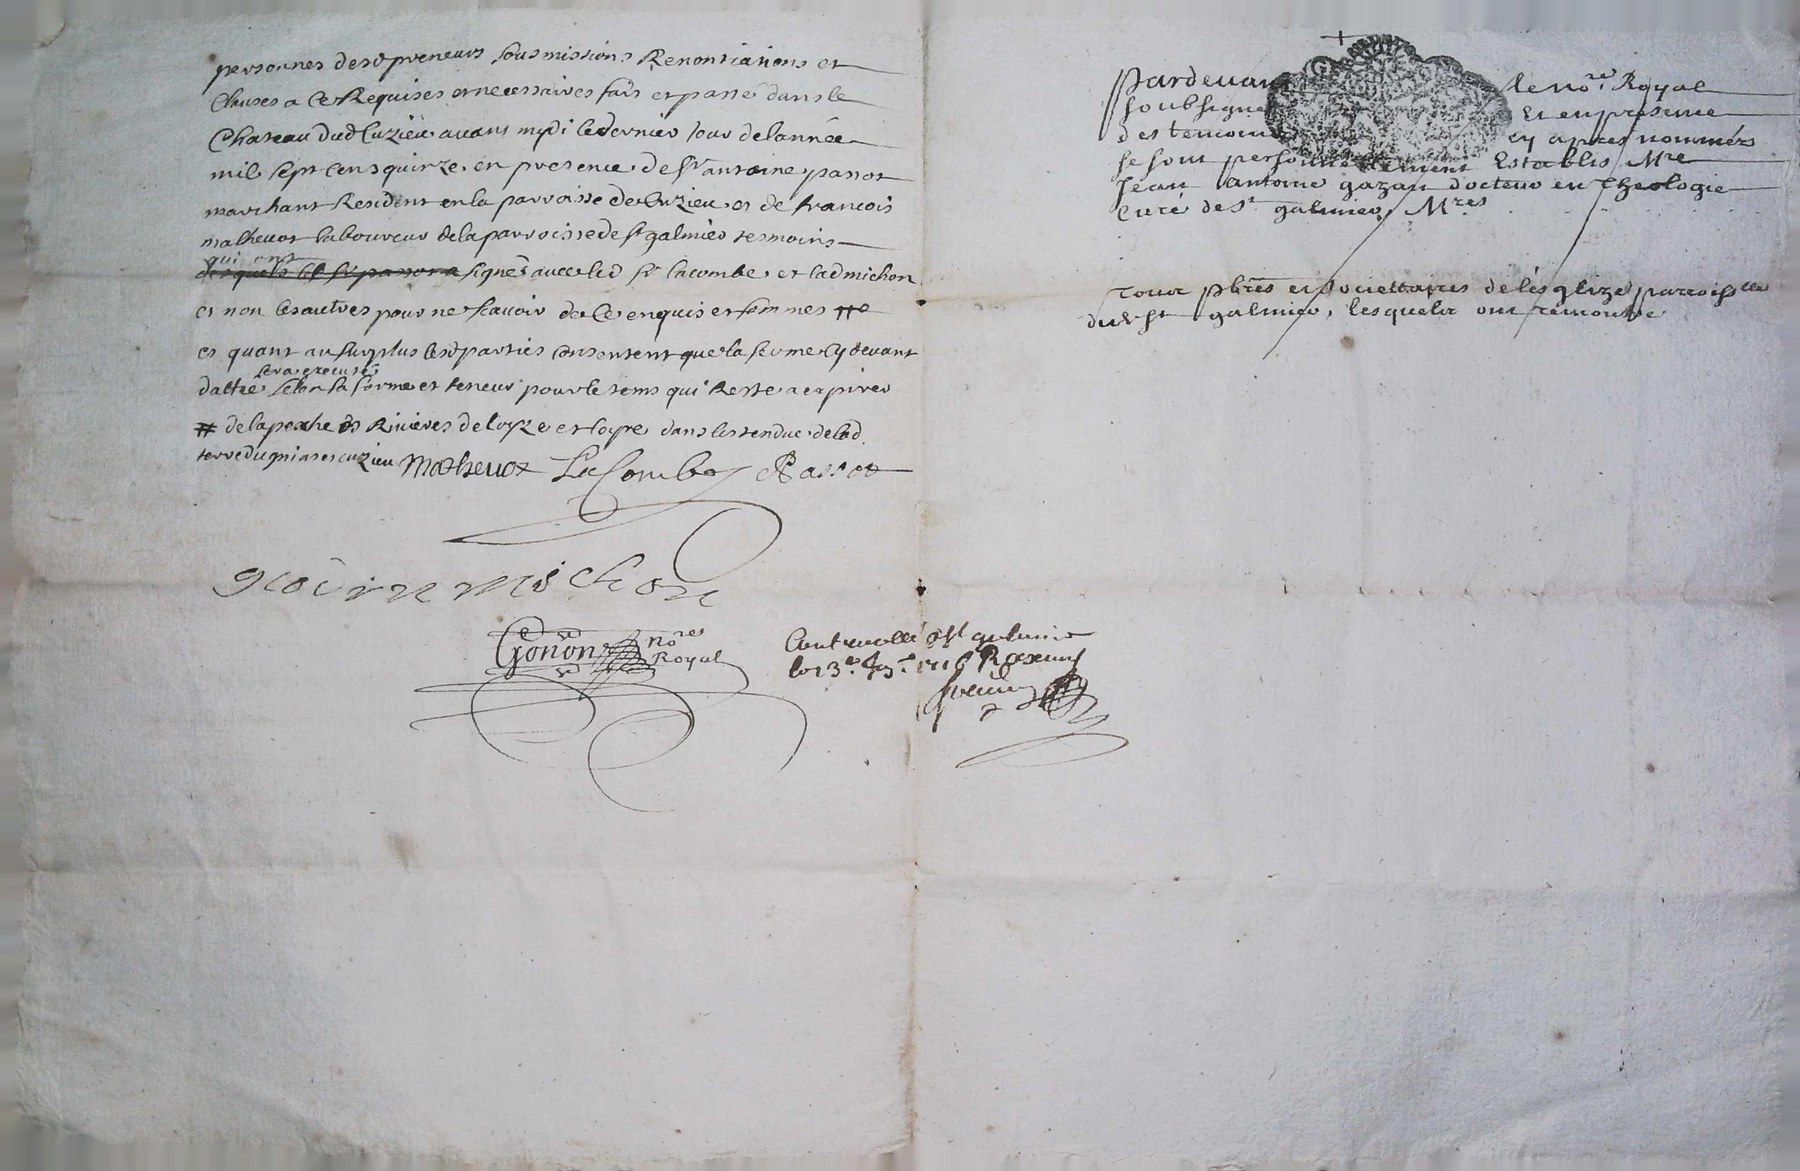 personnes desd preneurs sousmissions Renontiations et
Clauses a ce Requises et necessaires fait et passé dans le
Chateau dud Cuzieu avant mydi le dernier Jour de lannée
mil sept cens quinze en presence de Sr antoine passot
marchant Resident en la parroisse de Cuzieu et de francois
mathevot laboureur de la parroisse de St galmier tesmoins
qui ont
signés avec led Sr lacombe et lad michon
et non les autres pour ne scavoir de ce enquis et sommes #
et quant au surplus lesd parties consentent que la ferme cy devant
sera executé
dattée selon sa forme et teneur pour le tems qui Reste a expirer
# de la peche es Rivieres de loyze et loyre dans lestendue de lad
terre du et cuzieu Mathevot LaCombe Passot
michon
Gonon Nore
Royal
Controollé a St galmier
le 13e 1716 R
Pardevant le nore Royal
soubsigné Et en presence
des temoins cy apres nommés
se sont personnellement Establis Mre
Jean antoine gazan docteur en Theologie
Curé de St galmier, Mres
Tous pbres et societtaires de lesglize parroisslle
dud St galmier, lesquels ont remontré